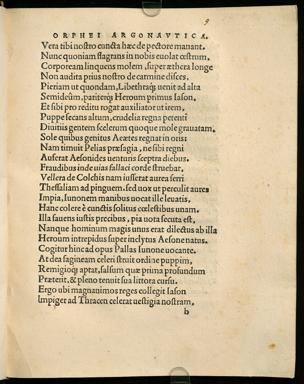 9
ORPHEI ARGONAVTICA.
Vera tibi nostro cuncta hæc de pectore manant.
Nunc quoniam flagrans in nobis euolat œstrum,
Corpoream linquens molem, super æthera longe
Non audita prius nostro de carmine disces.
Pieriam ut quondam, Libethraq; uenit ad alta
Semideûm, pariterq; Heroum primus Iason.
Et sibi pro reditu rogat auxiliator ut irem,
Puppe secans altum, crudelia regna petenti
Diuinis gentem scelerum quoque mole grauatam.
Sole quibus genitus Aeætes regnat in oris
Nam timuit Pelias præsagia, ne sibi regni
Auferat Aesonides uenturis sceptra diebus.
Fraudibus inde uias fallaci corde struebat.
Vellera de Colchis nam iusserat aurea ferri
Thessaliam ad pinguem. sed uox ut perculit aures
Impia, Iunonem manibus uocat ille leuatis.
Hanc colere è cunctis solitus cœlestibus unam.
Illa fauens iustis precibus, pia uota secuta est,
Nanque hominum magis unus erat dilectus ab illa
Heroum intrepidus super inclytus Aesone natus.
Cogitur hinc ad opus Pallas Iunone uocante.
At dea sagineam celeri struit ordine puppim,
Remigioq; aptat, salsum quæ prima profundum
Præterit, & pleno tenuit sua littora cursu.
Ergo ubi magnanimos reges collegit Iason
Impiger ad Thracen celerat uestigia nostram,
b